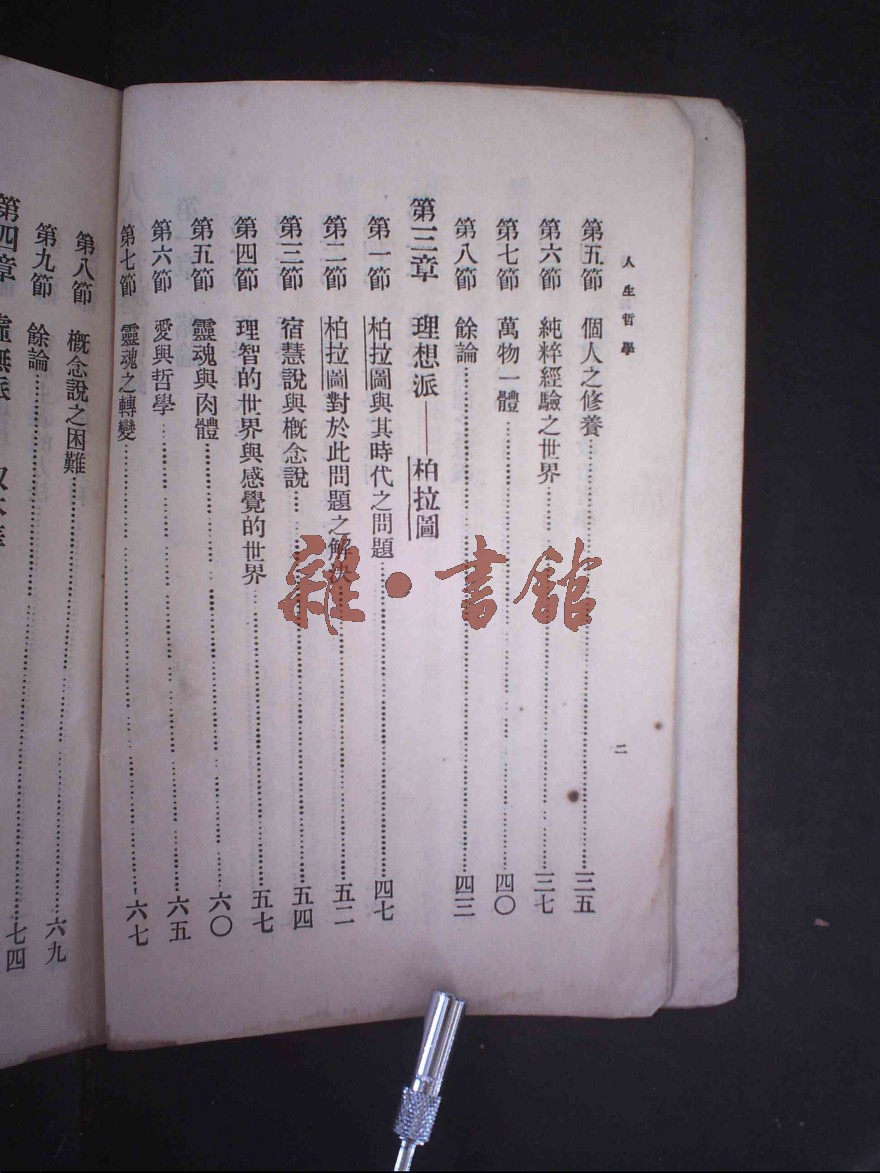 人生哲學
二
第五節 個人之修養……三五
第六節 純粹經驗之世界……三七
第七節 萬物一體……四〇
第八節 餘論……四三
第三章 理想派——柏拉圖
第一節 柏拉圖與其時代之問題……四七
第二節 柏拉圖對於此問題之解決……五二
第三節 宿慧說與概念說……五四
第四節 理智的世界與感覺的世界……五七
第五節 靈魂與肉體……六〇
第六節 愛與哲學……六五
第七節 靈魂之轉變……六七
第八節 概念說之困難……六九
第九節 餘論……七四
第四章 虛無派
雜·書館